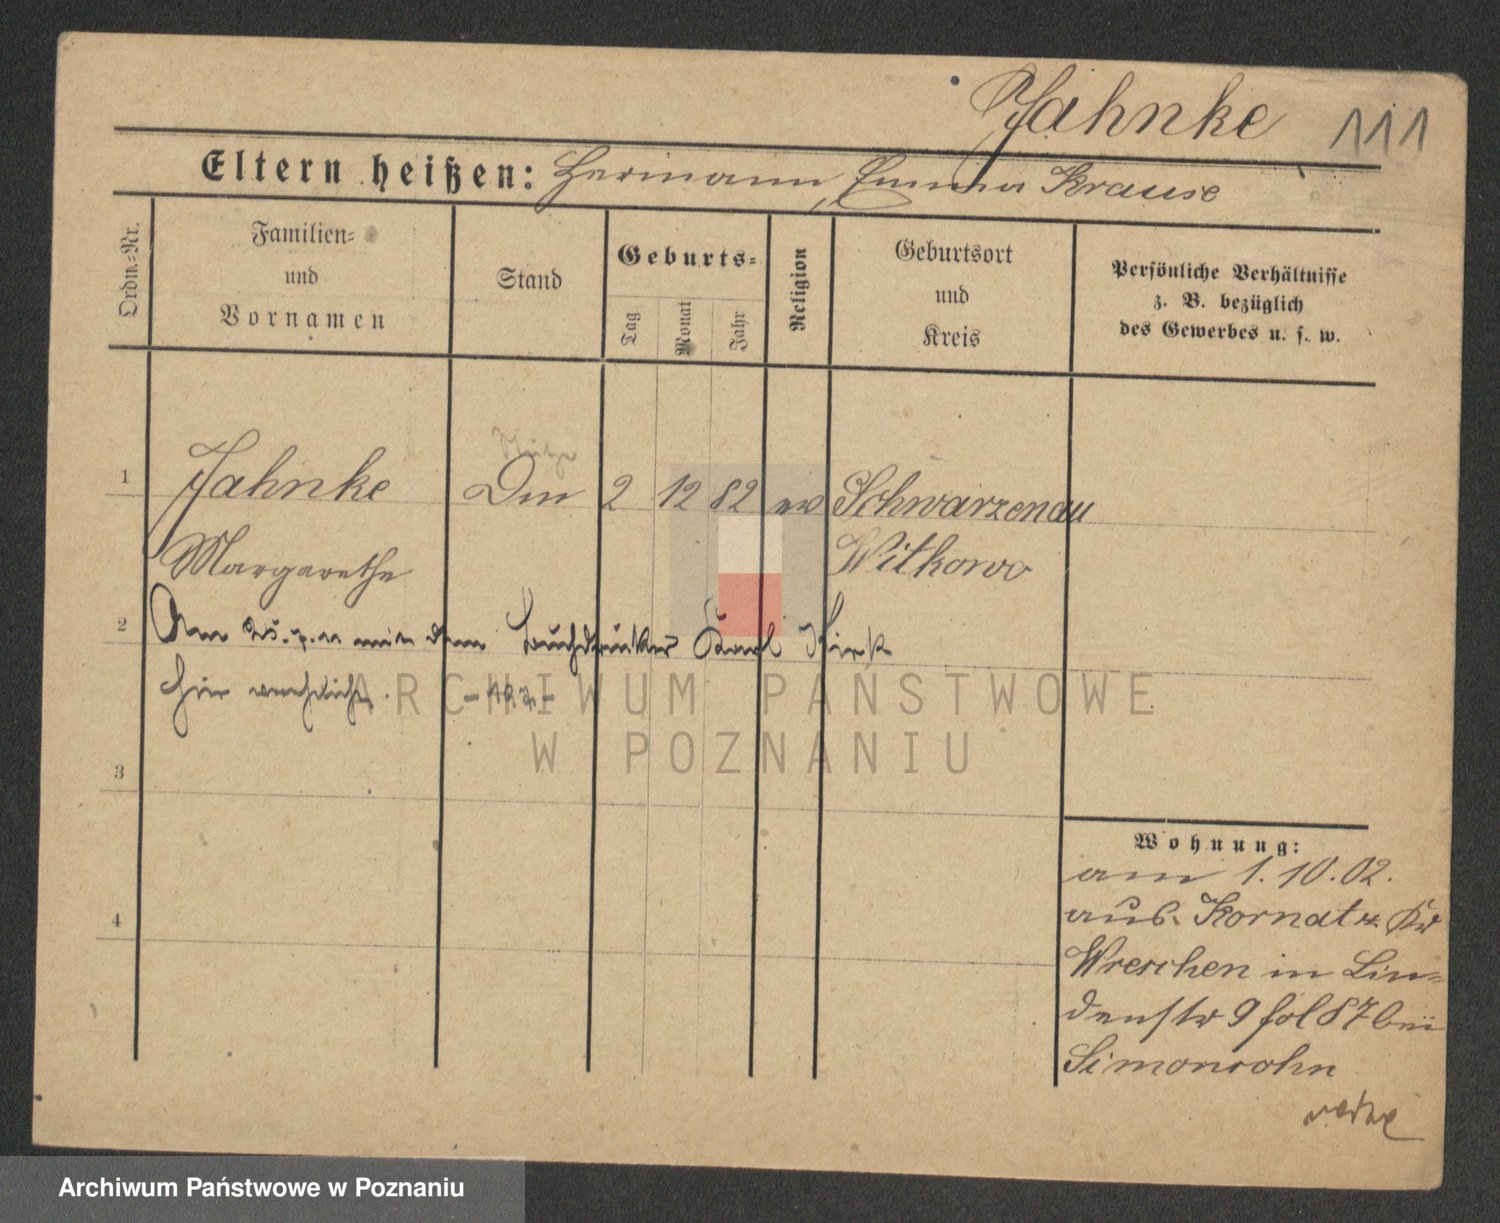 Jahnke 111
Eltern heißen: Hermann, Emma Krause
Ordn.-Nr.
Familien-
und
Vornamen
Stand
Geburts-
Tag
Monat
Jahr
Religion
Geburtsort
und
Kreis
Persönliche Verhältnisse
z. B. bezüglich
des Gewerbes u. s. w.
1 Jahnke 2 12 82 ev Schwarzenau
Margarethe Witkowo
2 Am mit dem Buchdrucker Karl
hier verehelicht.
3
4
Wohnung:
am 1.10.02.
aus Kornaty Kr
Wreschen in Lin-
denstr 9 fol 87 bei
Simonsohn
ARCHIWUM PAŃSTWOWE
W POZNANIU
Archiwum Państwowe w Poznaniu